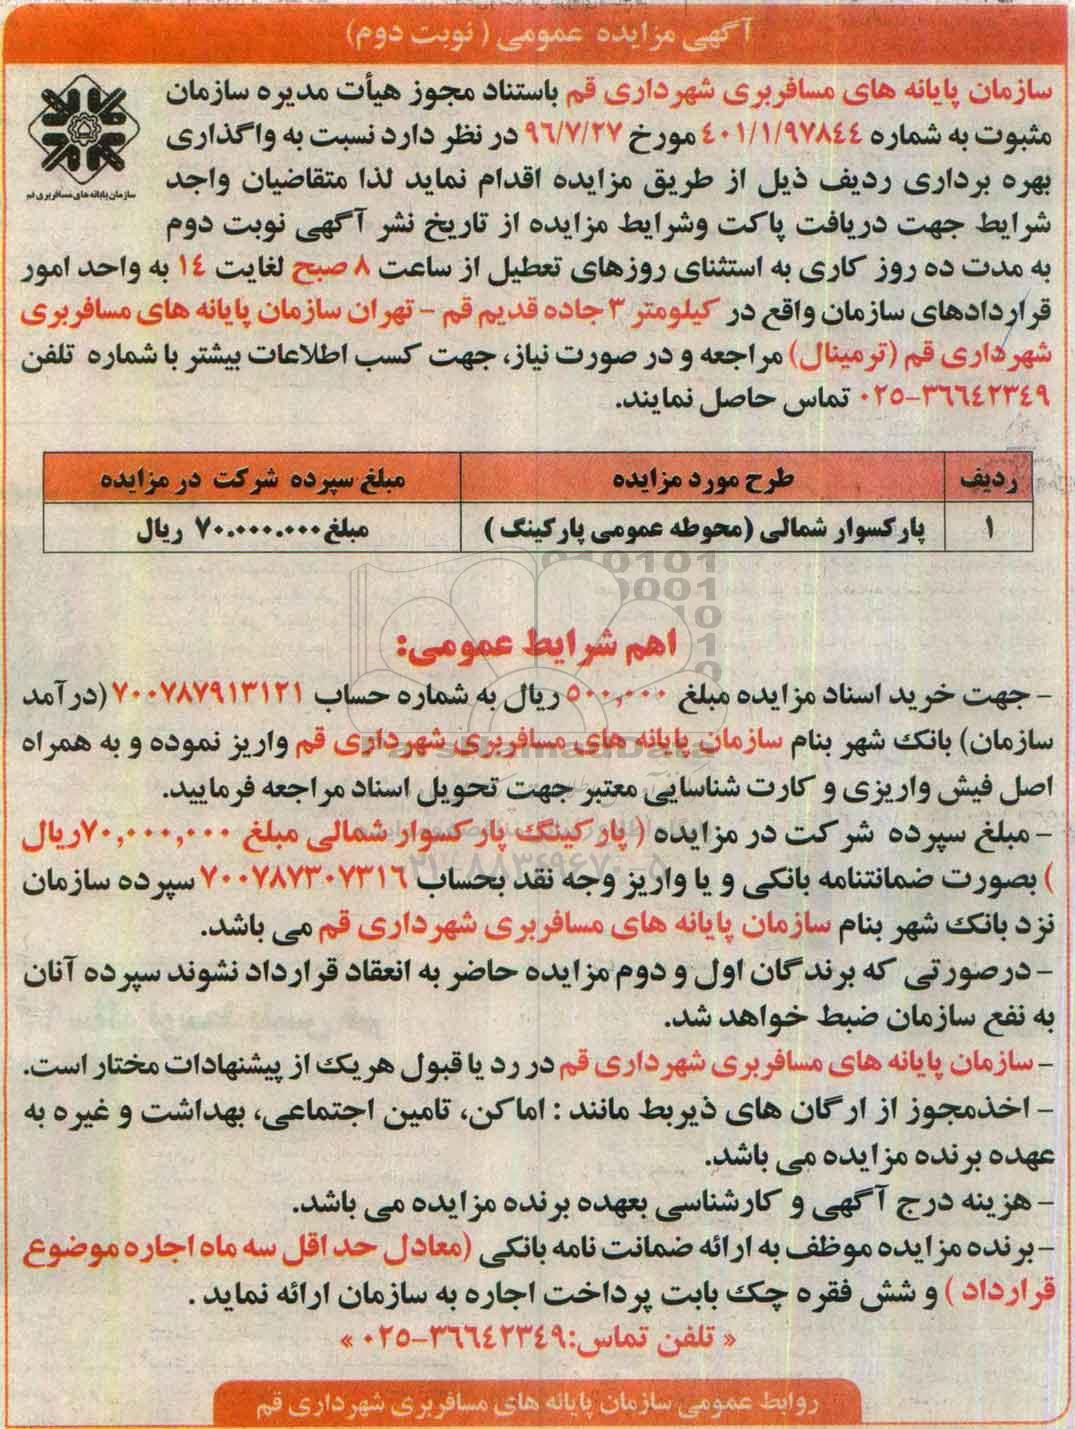 آگهی مزایده عمومی ( نوبت دوم)
سازمان پایانه های مسافربری شهرداری قم باستناد مجوز هیأت مدیره سازمان
مثبوت به شماره ٤٠١/١/٩٧٨٤٤ مورخ ٩٦/٧/٢٧ در نظر دارد نسبت به واگذاری
بهره برداری ردیف ذیل از طریق مزایده اقدام نماید لذا متقاضیان واجد
شرایط جهت دریافت پاکت وشرایط مزایده از تاریخ نشر آگهی نوبت دوم
به مدت ده روز کاری به استثنای روزهای تعطیل از ساعت ٨ صبح لغایت ١٤ به واحد امور
قراردادهای سازمان واقع در کیلومتر ٣ جاده قدیم قم - تهران سازمان پایانه های مسافربری
شهرداری قم (ترمینال) مراجعه و در صورت نیاز، جهت کسب اطلاعات بیشتر با شماره تلفن
٠٢٥-٣٦٦٤٢٣٤٩ تماس حاصل نمایند.
سازمان پایانه های مسافربری قم
ردیف طرح مورد مزایده مبلغ سپرده شرکت در مزایده
١ پارکسوار شمالی (محوطه عمومی پارکینگ ) مبلغ ٧٠.٠٠٠.٠٠٠ ریال
اهم شرایط عمومی:
- جهت خرید اسناد مزایده مبلغ ٥٠٠,٠٠٠ ریال به شماره حساب ٧٠٠٧٨٧٩١٣١٢١ (درآمد
سازمان) بانک شهر بنام سازمان پایانه های مسافربری شهرداری قم واریز نموده و به همراه
اصل فیش واریزی و کارت شناسایی معتبر جهت تحویل اسناد مراجعه فرمایید.
- مبلغ سپرده شرکت در مزایده ( پارکینگ پارکسوار شمالی مبلغ ٧٠,٠٠٠,٠٠٠ریال
) بصورت ضمانتنامه بانکی و یا واریز وجه نقد بحساب ٧٠٠٧٨٧٣٠٧٣١٦ سپرده سازمان
نزد بانک شهر بنام سازمان پایانه های مسافربری شهرداری قم می باشد.
- درصورتی که برندگان اول و دوم مزایده حاضر به انعقاد قرارداد نشوند سپرده آنان
به نفع سازمان ضبط خواهد شد.
- سازمان پایانه های مسافربری شهرداری قم در رد یا قبول هریک از پیشنهادات مختار است.
- اخذمجوز از ارگان های ذیربط مانند : اماکن، تامین اجتماعی، بهداشت و غیره به
عهده برنده مزایده می باشد.
- هزینه درج آگهی و کارشناسی بعهده برنده مزایده می باشد.
- برنده مزایده موظف به ارائه ضمانت نامه بانکی (معادل حداقل سه ماه اجاره موضوع
قرارداد ) و شش فقره چک بابت پرداخت اجاره به سازمان ارائه نماید .
« تلفن تماس:٣٦٦٤٢٣٤٩-٠٢٥ »
روابط عمومی سازمان پایانه های مسافربری شهرداری قم